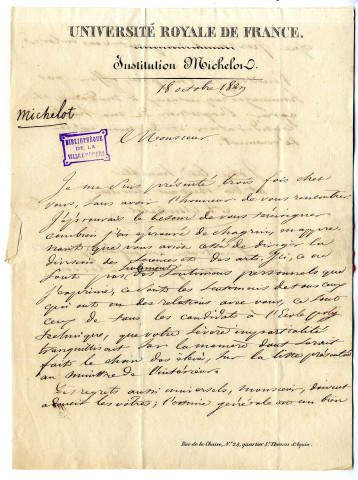 UNIVERSITÉ ROYALE DE FRANCE.
Institution Michelot.
18 octobre 18
Michelot
BIBLIOTHÈQUE
DE LA
VILLE
Monsieur
Je me suis présenté trois fois chez
vous, sans avoir l'honneur de vous rencontrer
J'éprouvais le besoin de vous témoigner
combien j'ai éprouvé de chagrin en appre-
nant que vous aviez cessé de diriger la
division des sciences et des arts. Ici, ce ne
sont pas seulement des sentimens personnels que
j'exprime; ce sont les sentimens de tous ceux
qui ont eu des relations avec vous, ce sont
ceux de tous les candidats à l'école poly
technique, que votre sévère impartialité
tranquillisait sur la manière dont serait
fait le choix des élèves, sur la liste présentée
au ministre de l'intérieur.
Des regrets aussi universels, monsieur, doivent
adoucir les vôtres; l'estime générale est un bien
Rue de la Chaise, N.º 24, quartier S.t Thomas d'Aquin.